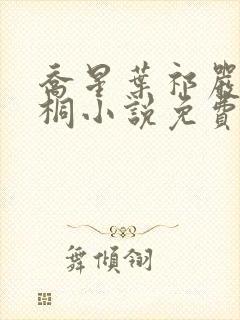 喬星葉祁嚴
桐小說免費
舞傾翎